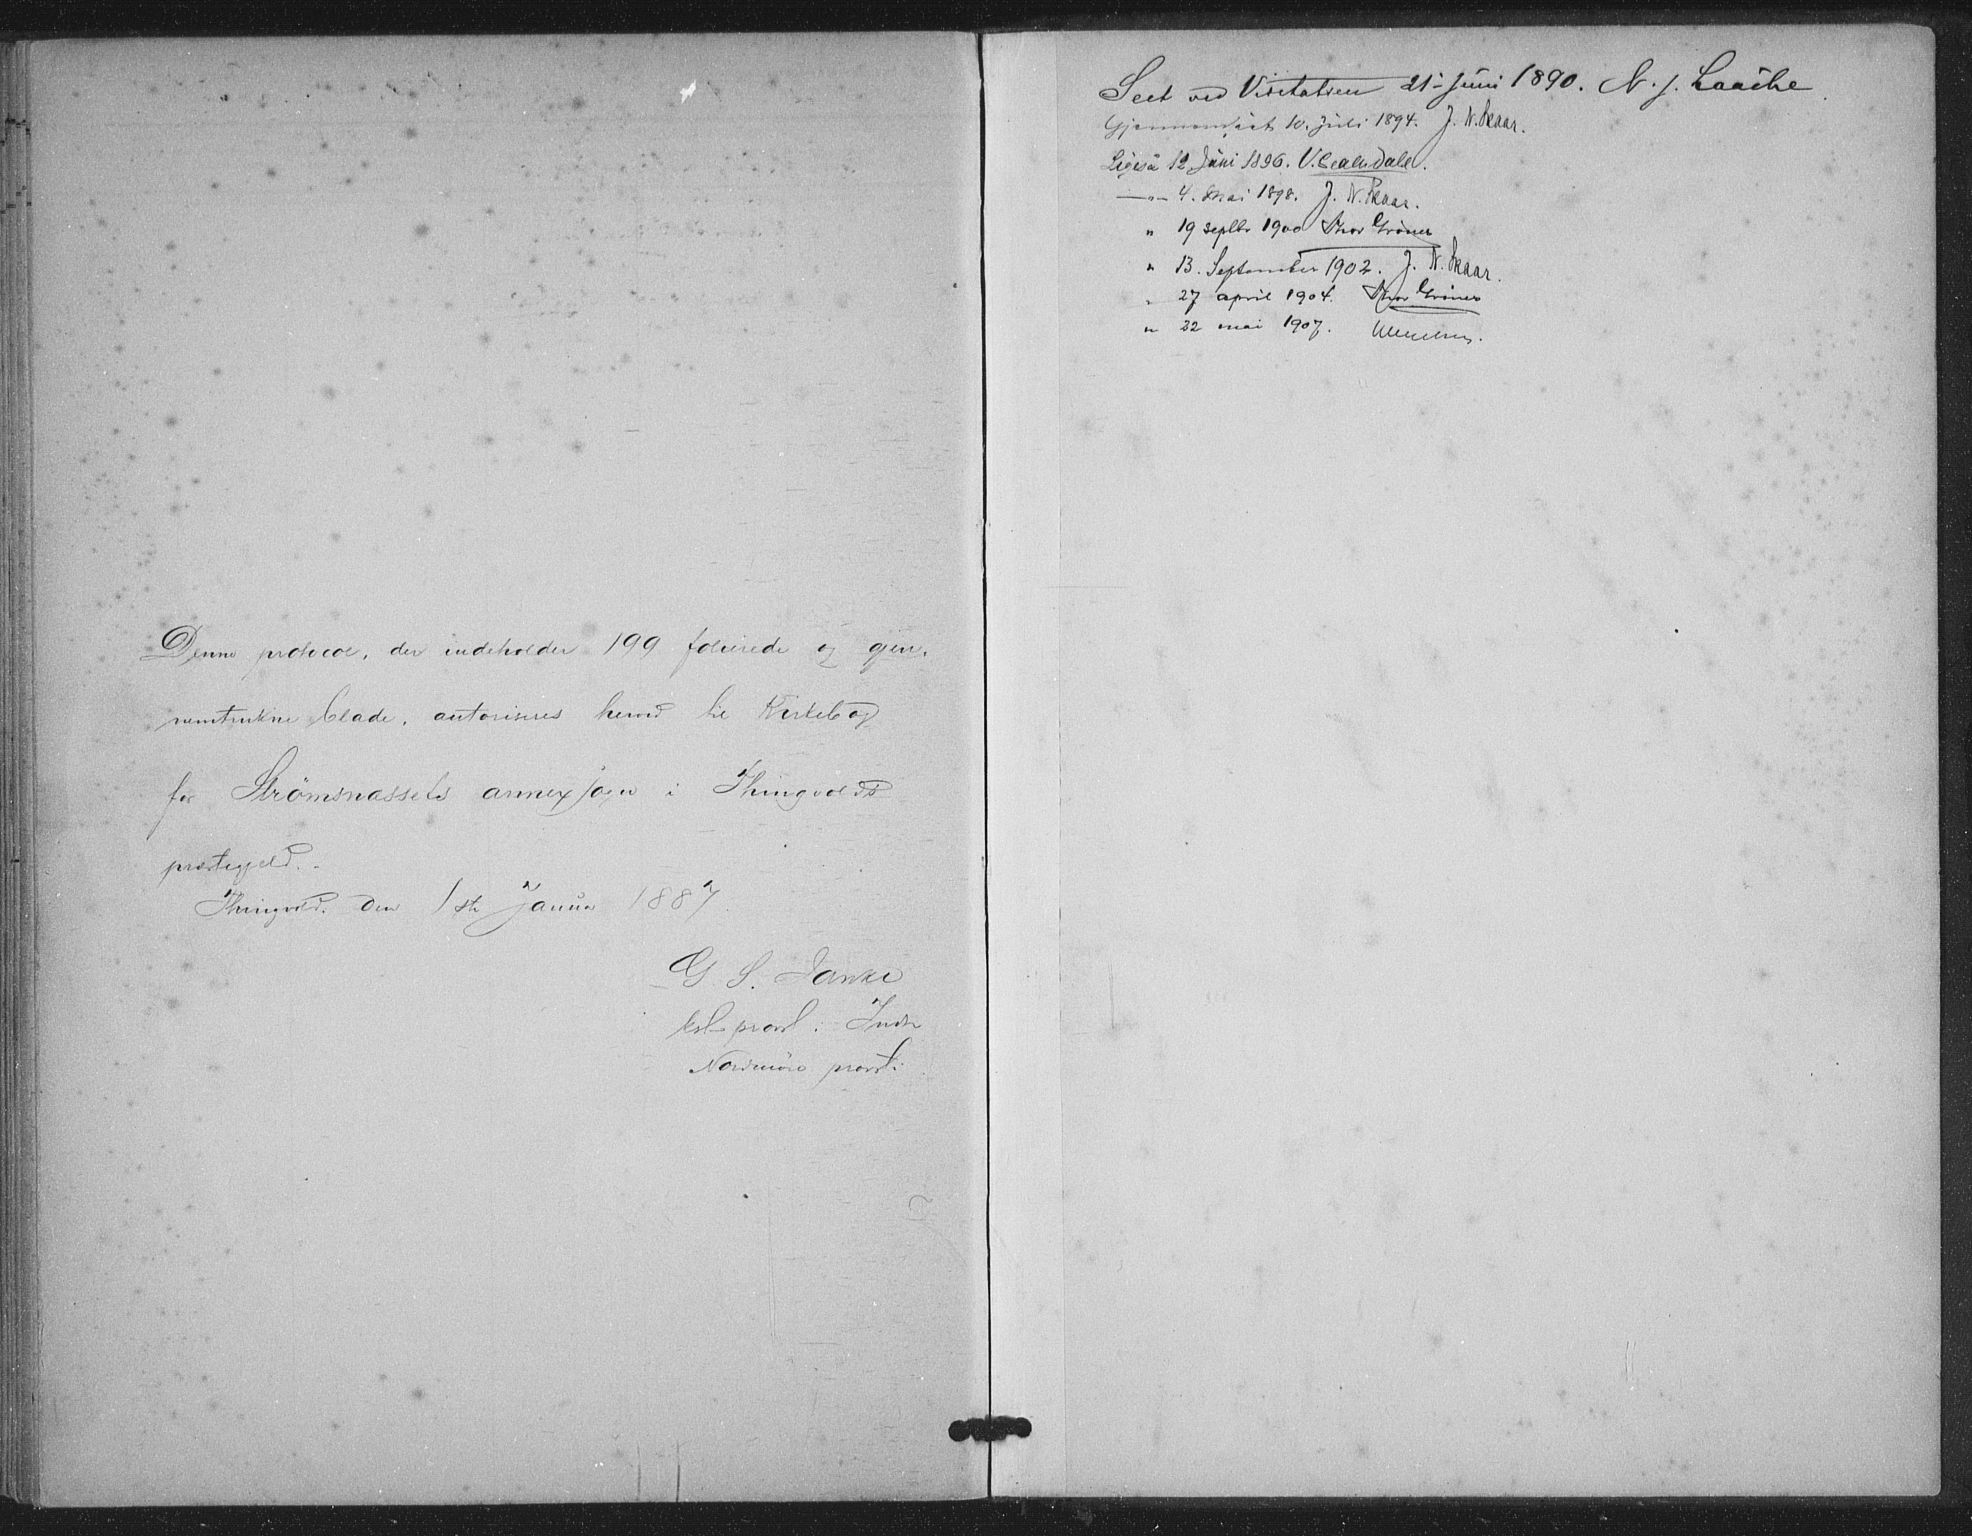 Denne protocol, der indeholder 199 folierede og gjen-
nemtrukne blade, autoriseres herved til Kirkebog
for Strömsnæssets annexsogn i Thingvolds
præstegjeld.
Thingvold den 1ste Januar 1887
G S. Janke
kst provst i Indre
Nordmöre provsti
Seet ved Visitatsen 21-Juni 1890. N. J. Laache
Gjennemseet 10. Juli 1894. J. N. Skaar.
Ligesaa 12 Juni 1896. V.
—"— 4. Mai 1898. J. N. Skaar.
" 19 septbr 1900 Thor Gröner
" 13. September 1902. J. N. Skaar.
" 27 april 1904. Thor Gröner
" 22 mai 1907.